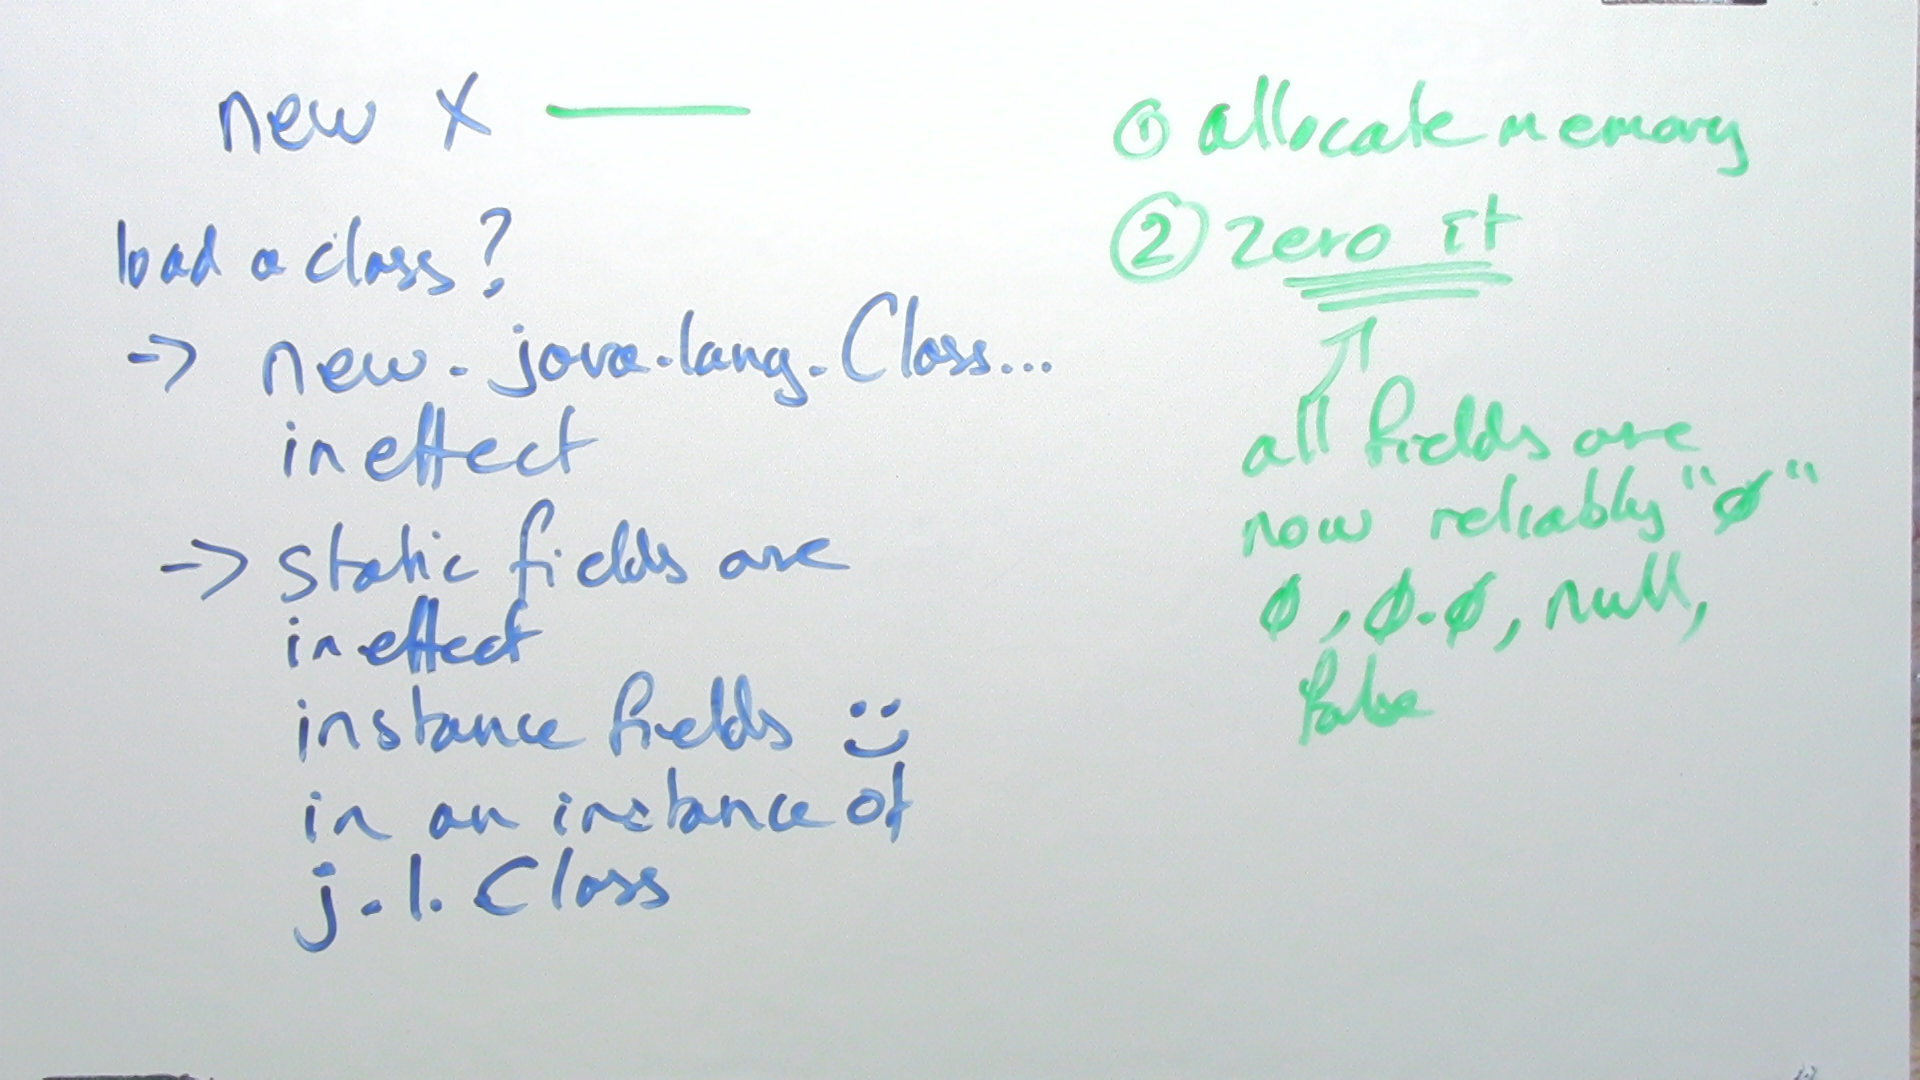 new X
load a class?
-> new . java.lang.Class...
in effect
-> static fields are
in effect
instance fields :)
in an instance of
j.l.Class
① allocate memory
② zero it
all fields are
now reliably "ø"
ø, ø.ø, null,
false